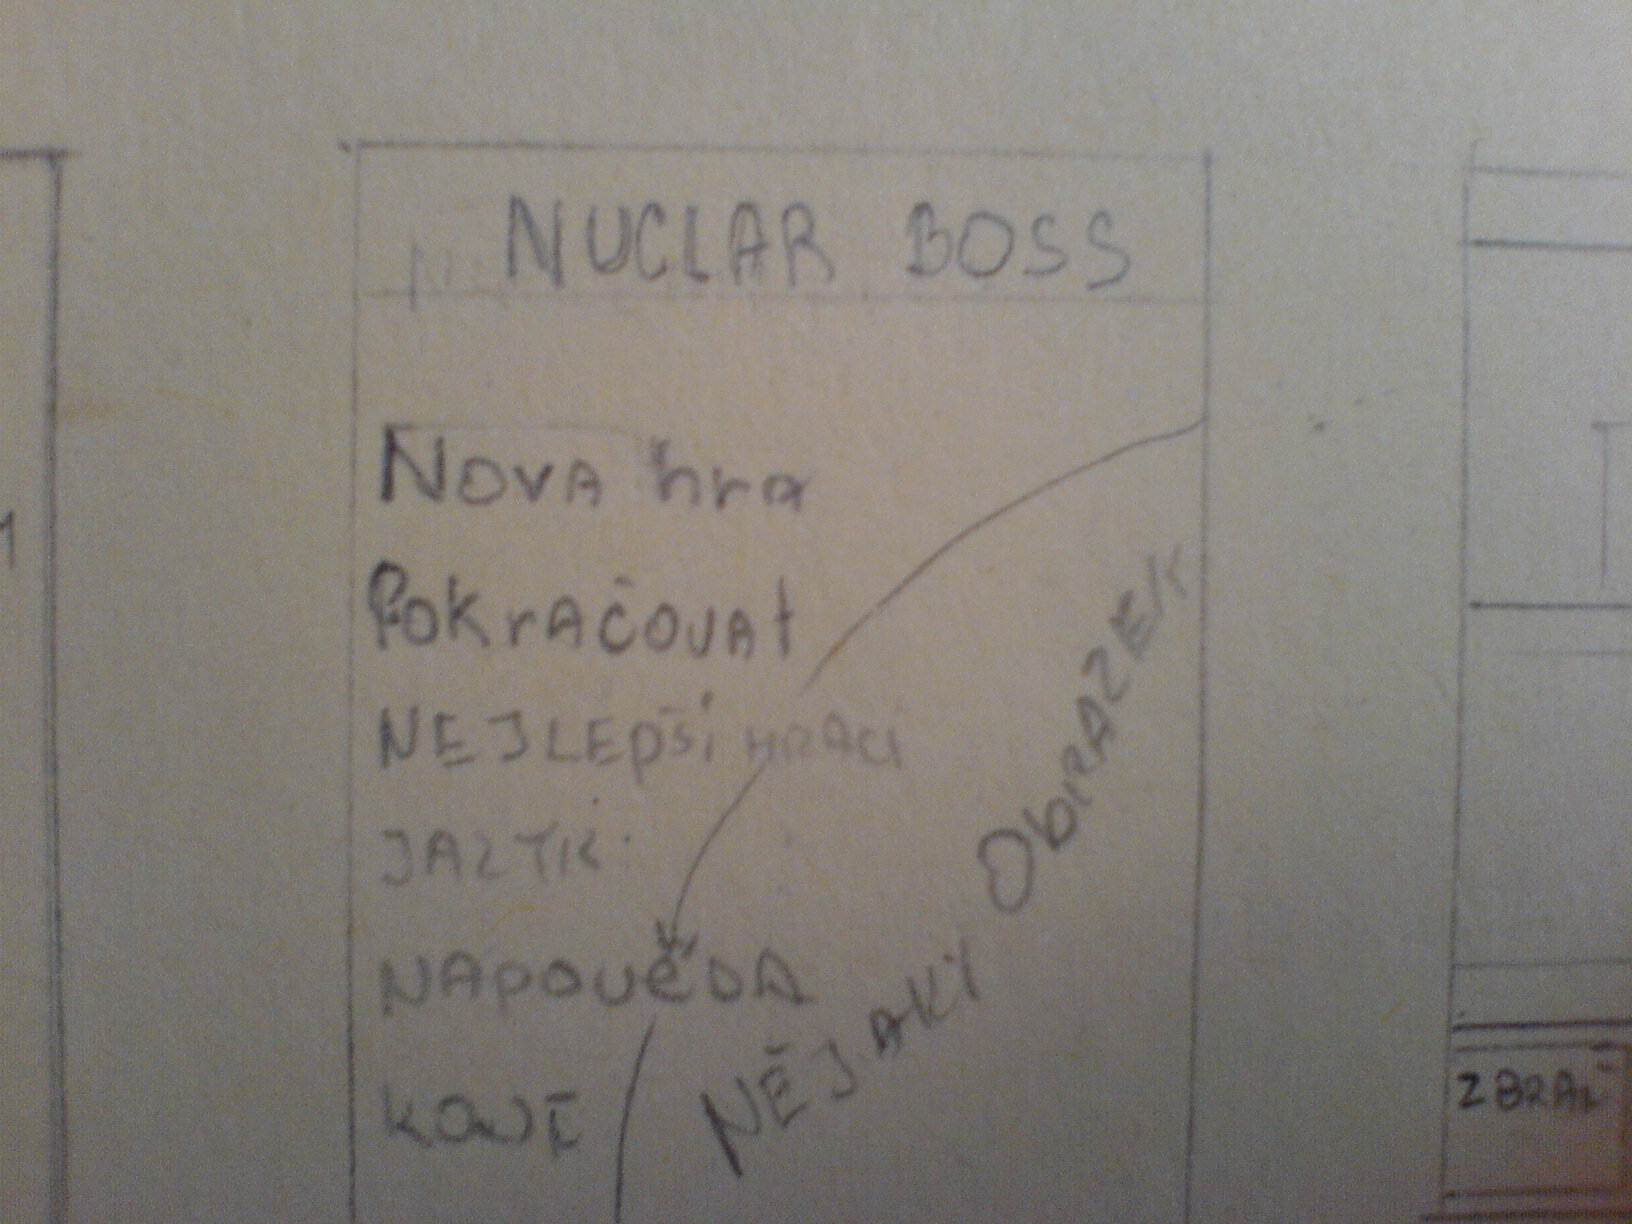 NUCLAR BOSS
NOVA hra
POKrAČOVAt
NEJLEPŠÍ HRACI
JAZYK
NAPOVĚDA
NĚJAKY ObrAZEK
ZBRAŇ